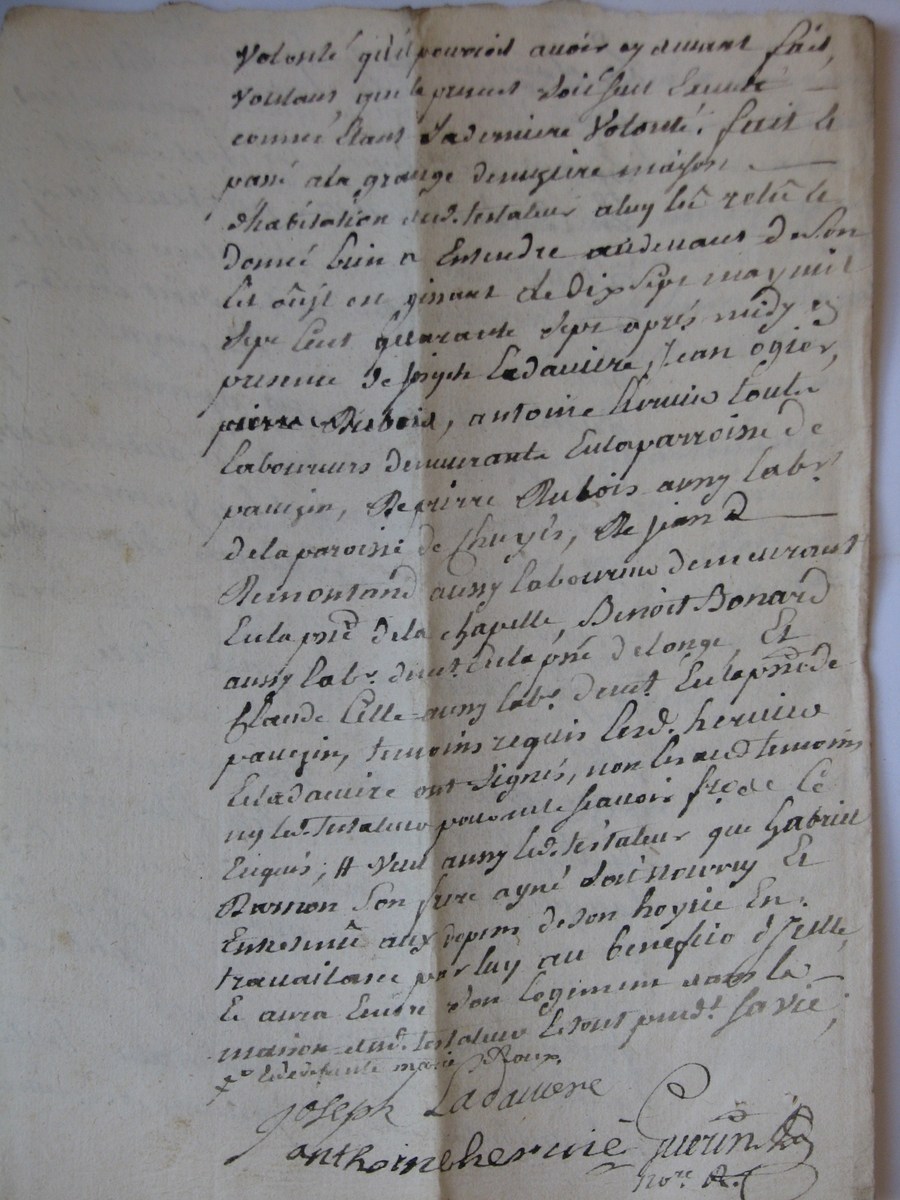 volonté qu'il pourroit avoir cy devant fait,
voulant que le present soit suit Executé
comme Etant sa derniere volonté. fait et
passé a la grange demeziere maison
d'habitation dud. testateur a luy lû relû et
donné bien a Entendre audevant de son
lit ou il est gisant le Dix Sept may mil
Sept Cent quarante Sept aprés midy en
presence de joseph Ladaviere, Jean ogier,
pierre Dubois, antoine hervier touts
laboureurs demeurants En la parroisse de
pavezin, De pierre Dubois aussy labr.
de la paroisse de Chuyés, De jean
Remontand aussy laboureur demeurant
En la psse de la chapelle, Benoit Bonard
aussy labr. demt. En la psse de longe, Et
Claude Celle aussy labr. demt. En la psse de
pavezin, temoins requis lesd. hervier
Et ladaviere ont signés, non les aud temoins
ny led. testateur pour ne sçavoir fre de ce
Enquis; # veut aussy led. testateur que Gabriel
Ramon son frere ayné soit nourry Et
Entretenû aux depens de son hoyrie En
travaillant par luy au benefice d'jcelle,
Et aura Encore son logement dans la
maison dud. testateur le tout pendt. sa vie;
Joseph Ladaviere
anthoine hervié Guerin
nore R.